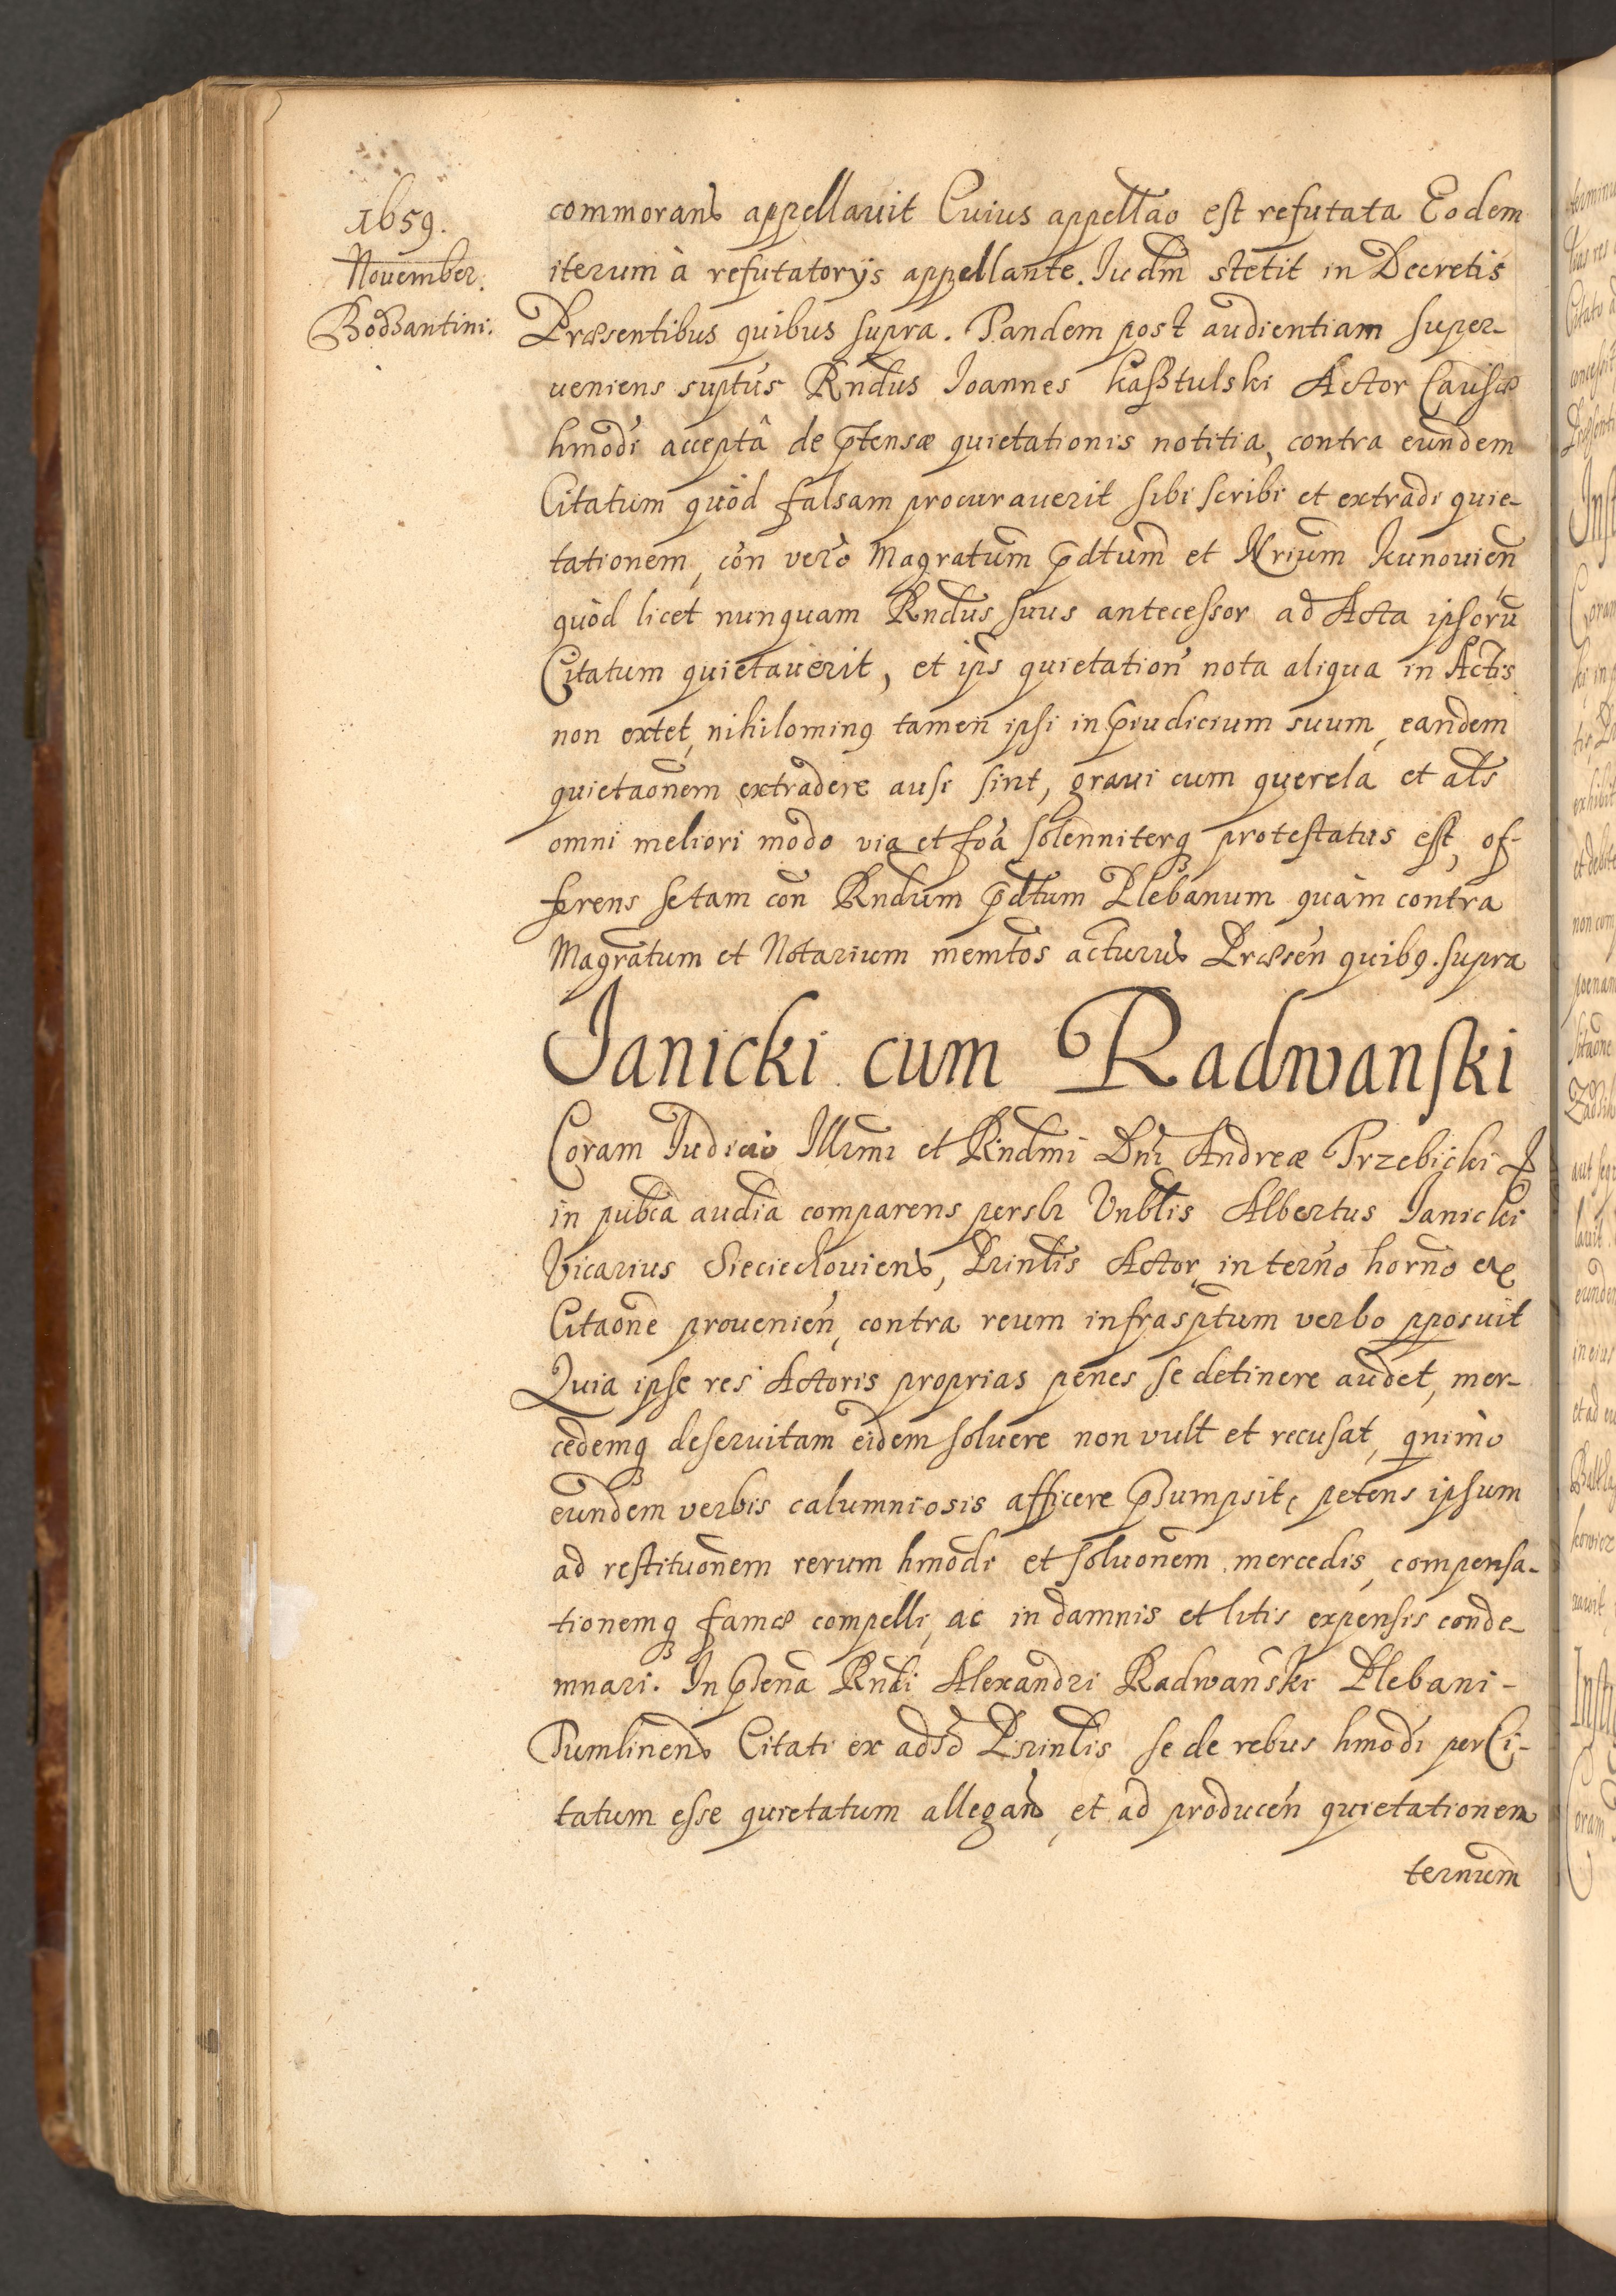 1659.
November.
Bodzantini.
commorans appellavit Cuius appellao est refutata Eodem
iterum à refutatorijs appellante. Iudm stetit in Decretis
Præsentibus quibus supra. Tandem post audientiam super-
ueniens suptus Rndus Ioannes Kasztulski Actor Causæ
hmodi acceptâ de ptensæ quietationis notitia, contra eundem
Citatum quòd falsam procurauerit sibi scribi et extradi quie-
tationem, con verò Magratum pdtum et Nrium Kunouien
quòd licet nunquam Rndus suus antecessor ad Acta ipsorū
Citatum quietauerit, et ips quietation nota aliqua in Actis
non extet, nihilominq tamen ipsi in piudicium suum, eandem
quietaonem extradere ausi sint, graui cum querela et als
omni meliori modo via et foa solenniterq protestatus est, of-
ferens se tam con Rndum pdtum Plebanum quàm contra
Magratum et Notarium memtos acturus Præsen quibq. supra
Janicki cum Radwanski
Coram Judicio Illmi et Rndmi Dni Andreæ Trzebicki
in publca audia comparens perslr Vnblis Albertus Janicki
Vicarius Sieciechouiens, Prinlis Actor, in terno horno ex
Citaone prouenien, contra reum infrasptum verbo pposuit
Quia ipse res Actoris proprias penes se detinere audet, mer-
cedemq deseruitam eidem soluere non vult et recusat, qnimò
eundem verbis calumniosis afficere psumpsit, petens ipsum
ad restituonem rerum hmodi et soluonem mercedis, compensa-
tionemq famæ compelli, ac in damnis et litis expensis conde-
mnari. In psena Rndi Alexandri Radwanski Plebani-
Tumlinens Citati ex adso Prinlis se de rebus hmodi per Ci-
tatum esse quietatum allegans, et ad producen quietationem
ternum